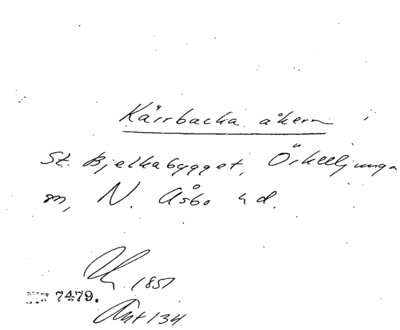 Kärrbacka åkern i
St. Bjelkabygget, Örkelljunga
sn, N. Åsbo hd.
1851
Nr 7479.
Ant 134